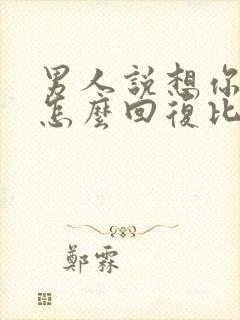 男人說想你
怎麼回復比
鄭霖